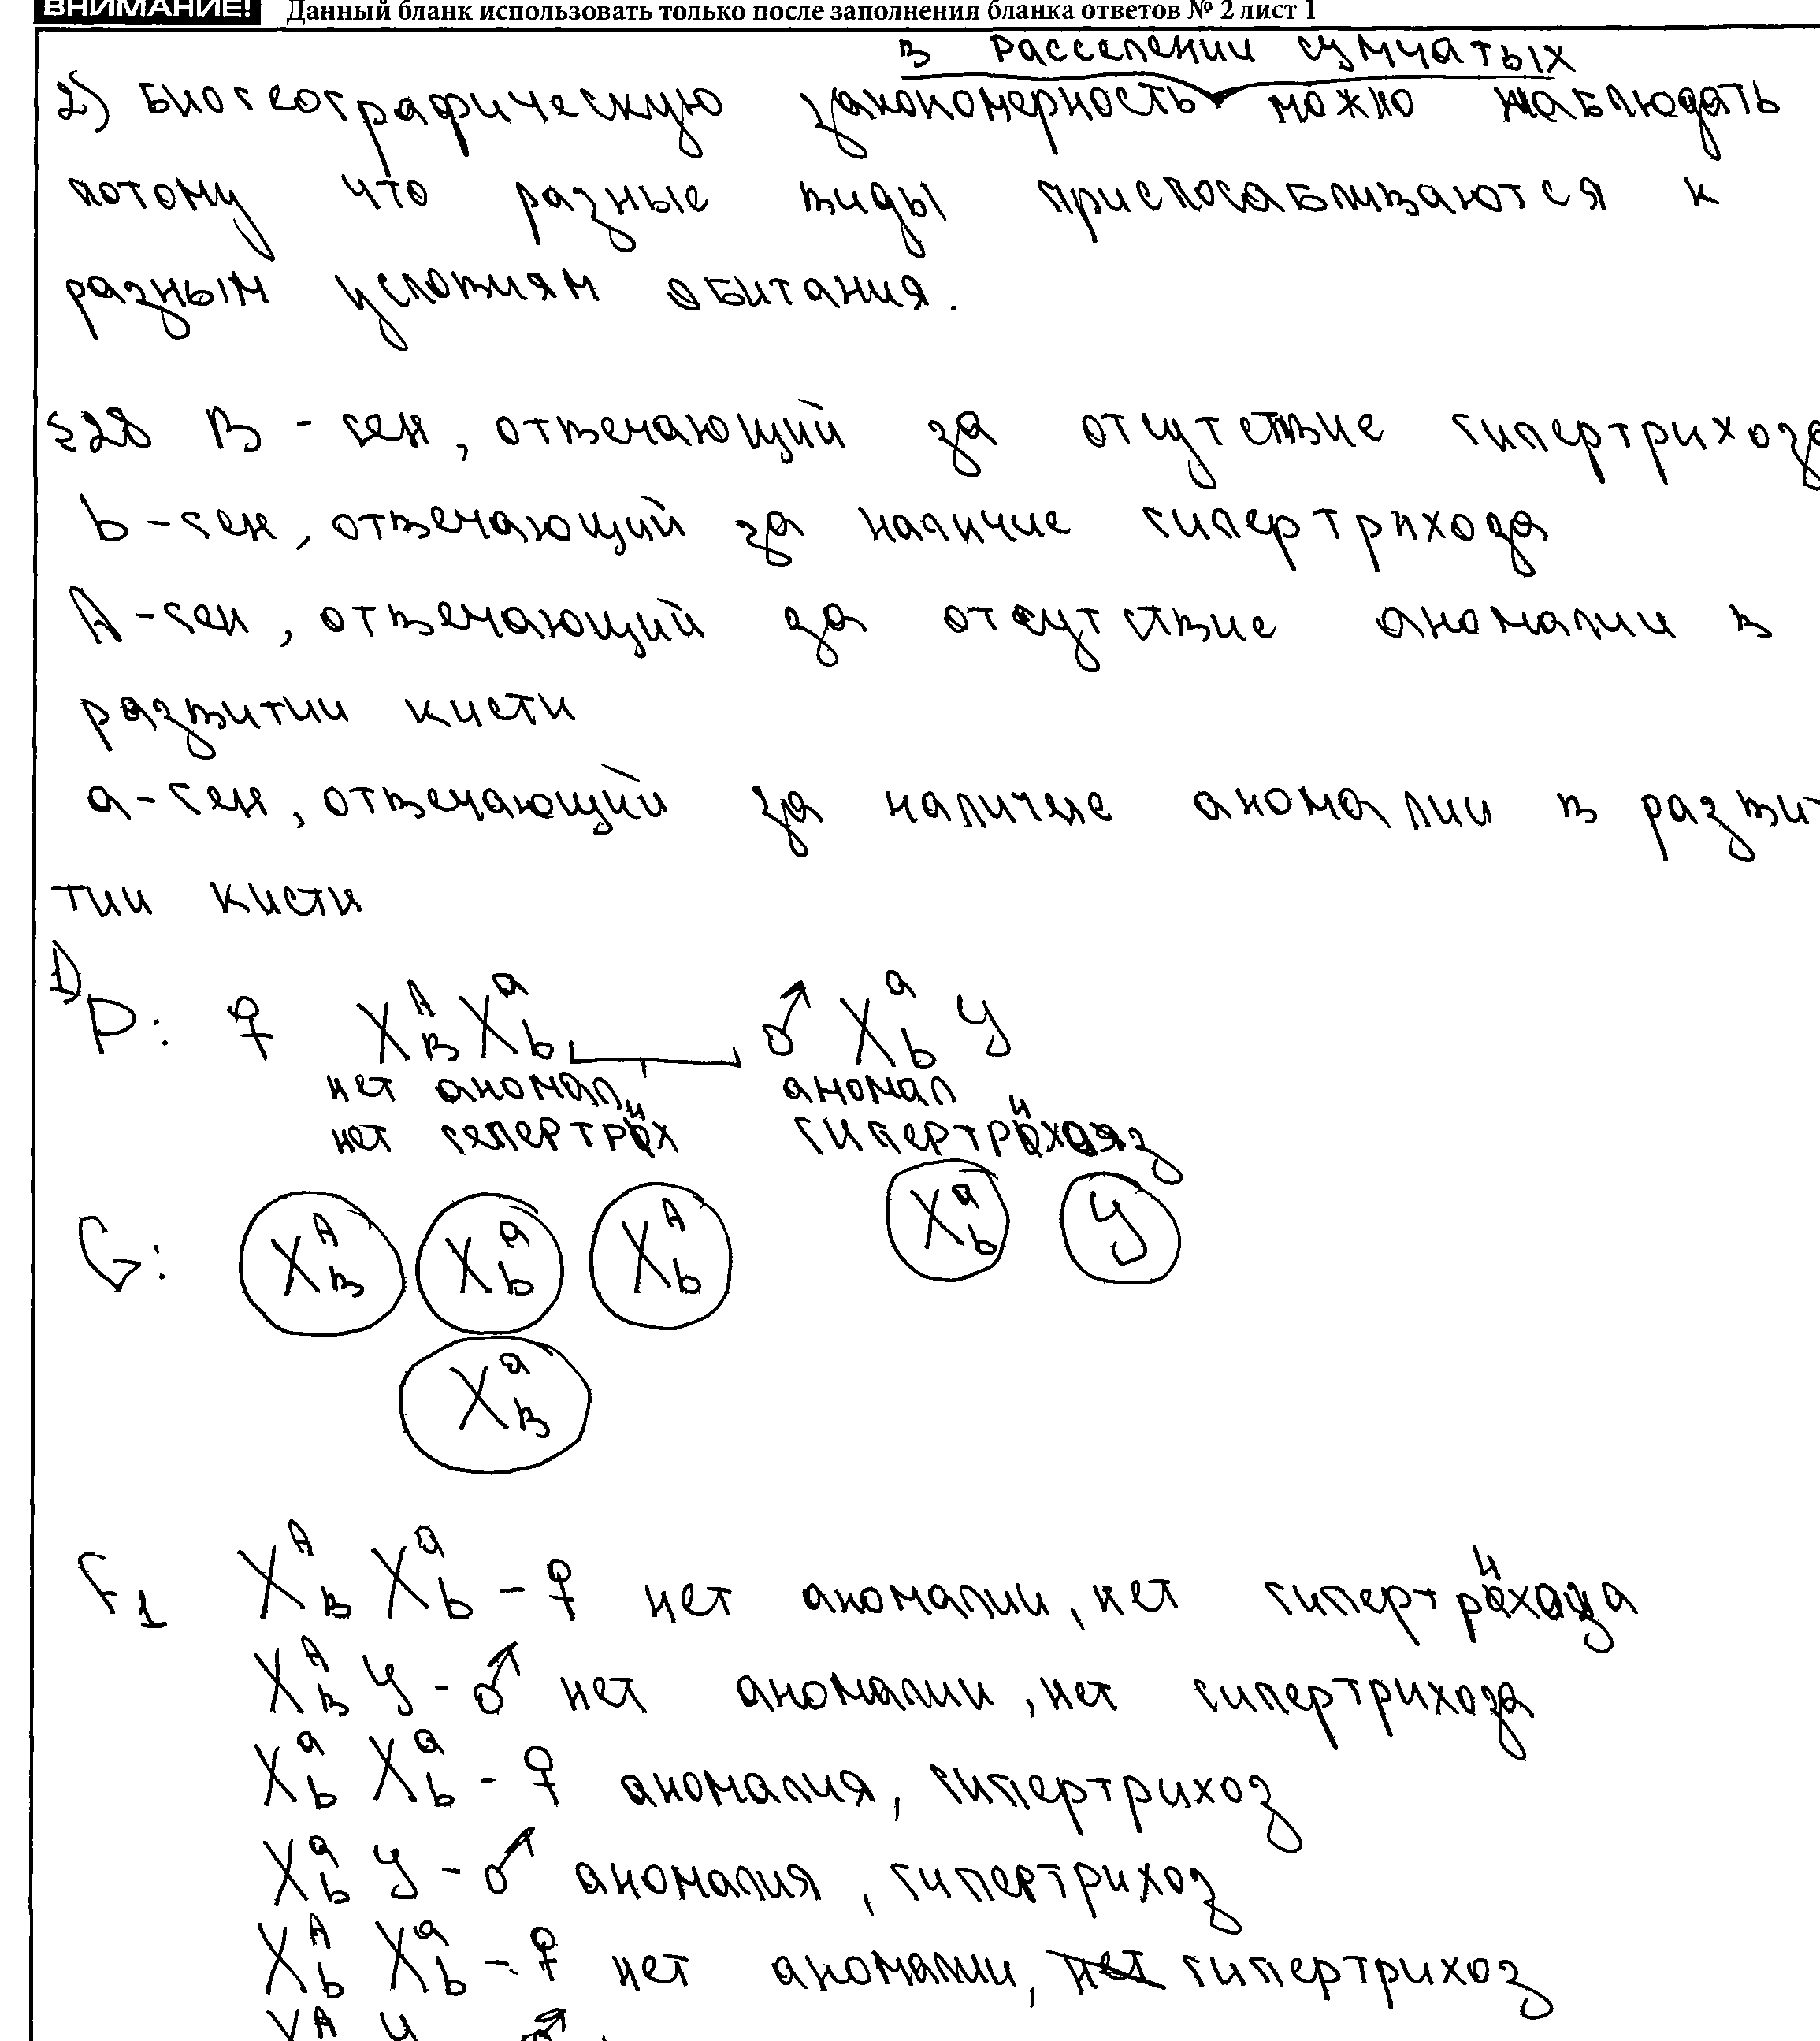 ВНИМАНИЕ! Данный бланк использовать только после заполнения бланка ответов № 2 лист 1
в расселении сумчатых
2) Биогеографическую закономерность можно наблюдать
потому что разные виды приспосабливаются к
разным условиям обитания.
28 B - ген, отвечающий за отсутствие гипертрихоза
b - ген, отвечающий за наличие гипертрихоза
A - ген, отвечающий за отсутствие аномалии в
развитии кисти
a - ген, отвечающий за наличие аномалии в разви-
тии кисти
1)
P: ♀ X^A_B X^a_b ♂ X^a_b У
нет аномал, аномал
нет гепертрих гипертрихоз
G: X^A_B X^a_b X^A_b X^a_b У
X^a_B
F1 X^A_B X^a_b - ♀ нет аномалии, нет гипертрихоза
X^A_B У - ♂ нет аномалии, нет гипертрихоза
X^a_b X^a_b - ♀ аномалия, гипертрихоз
X^a_b У - ♂ аномалия, гипертрихоз
X^A_b X^a_b - ♀ нет аномалии, нет гипертрихоз
X^A У - ♂